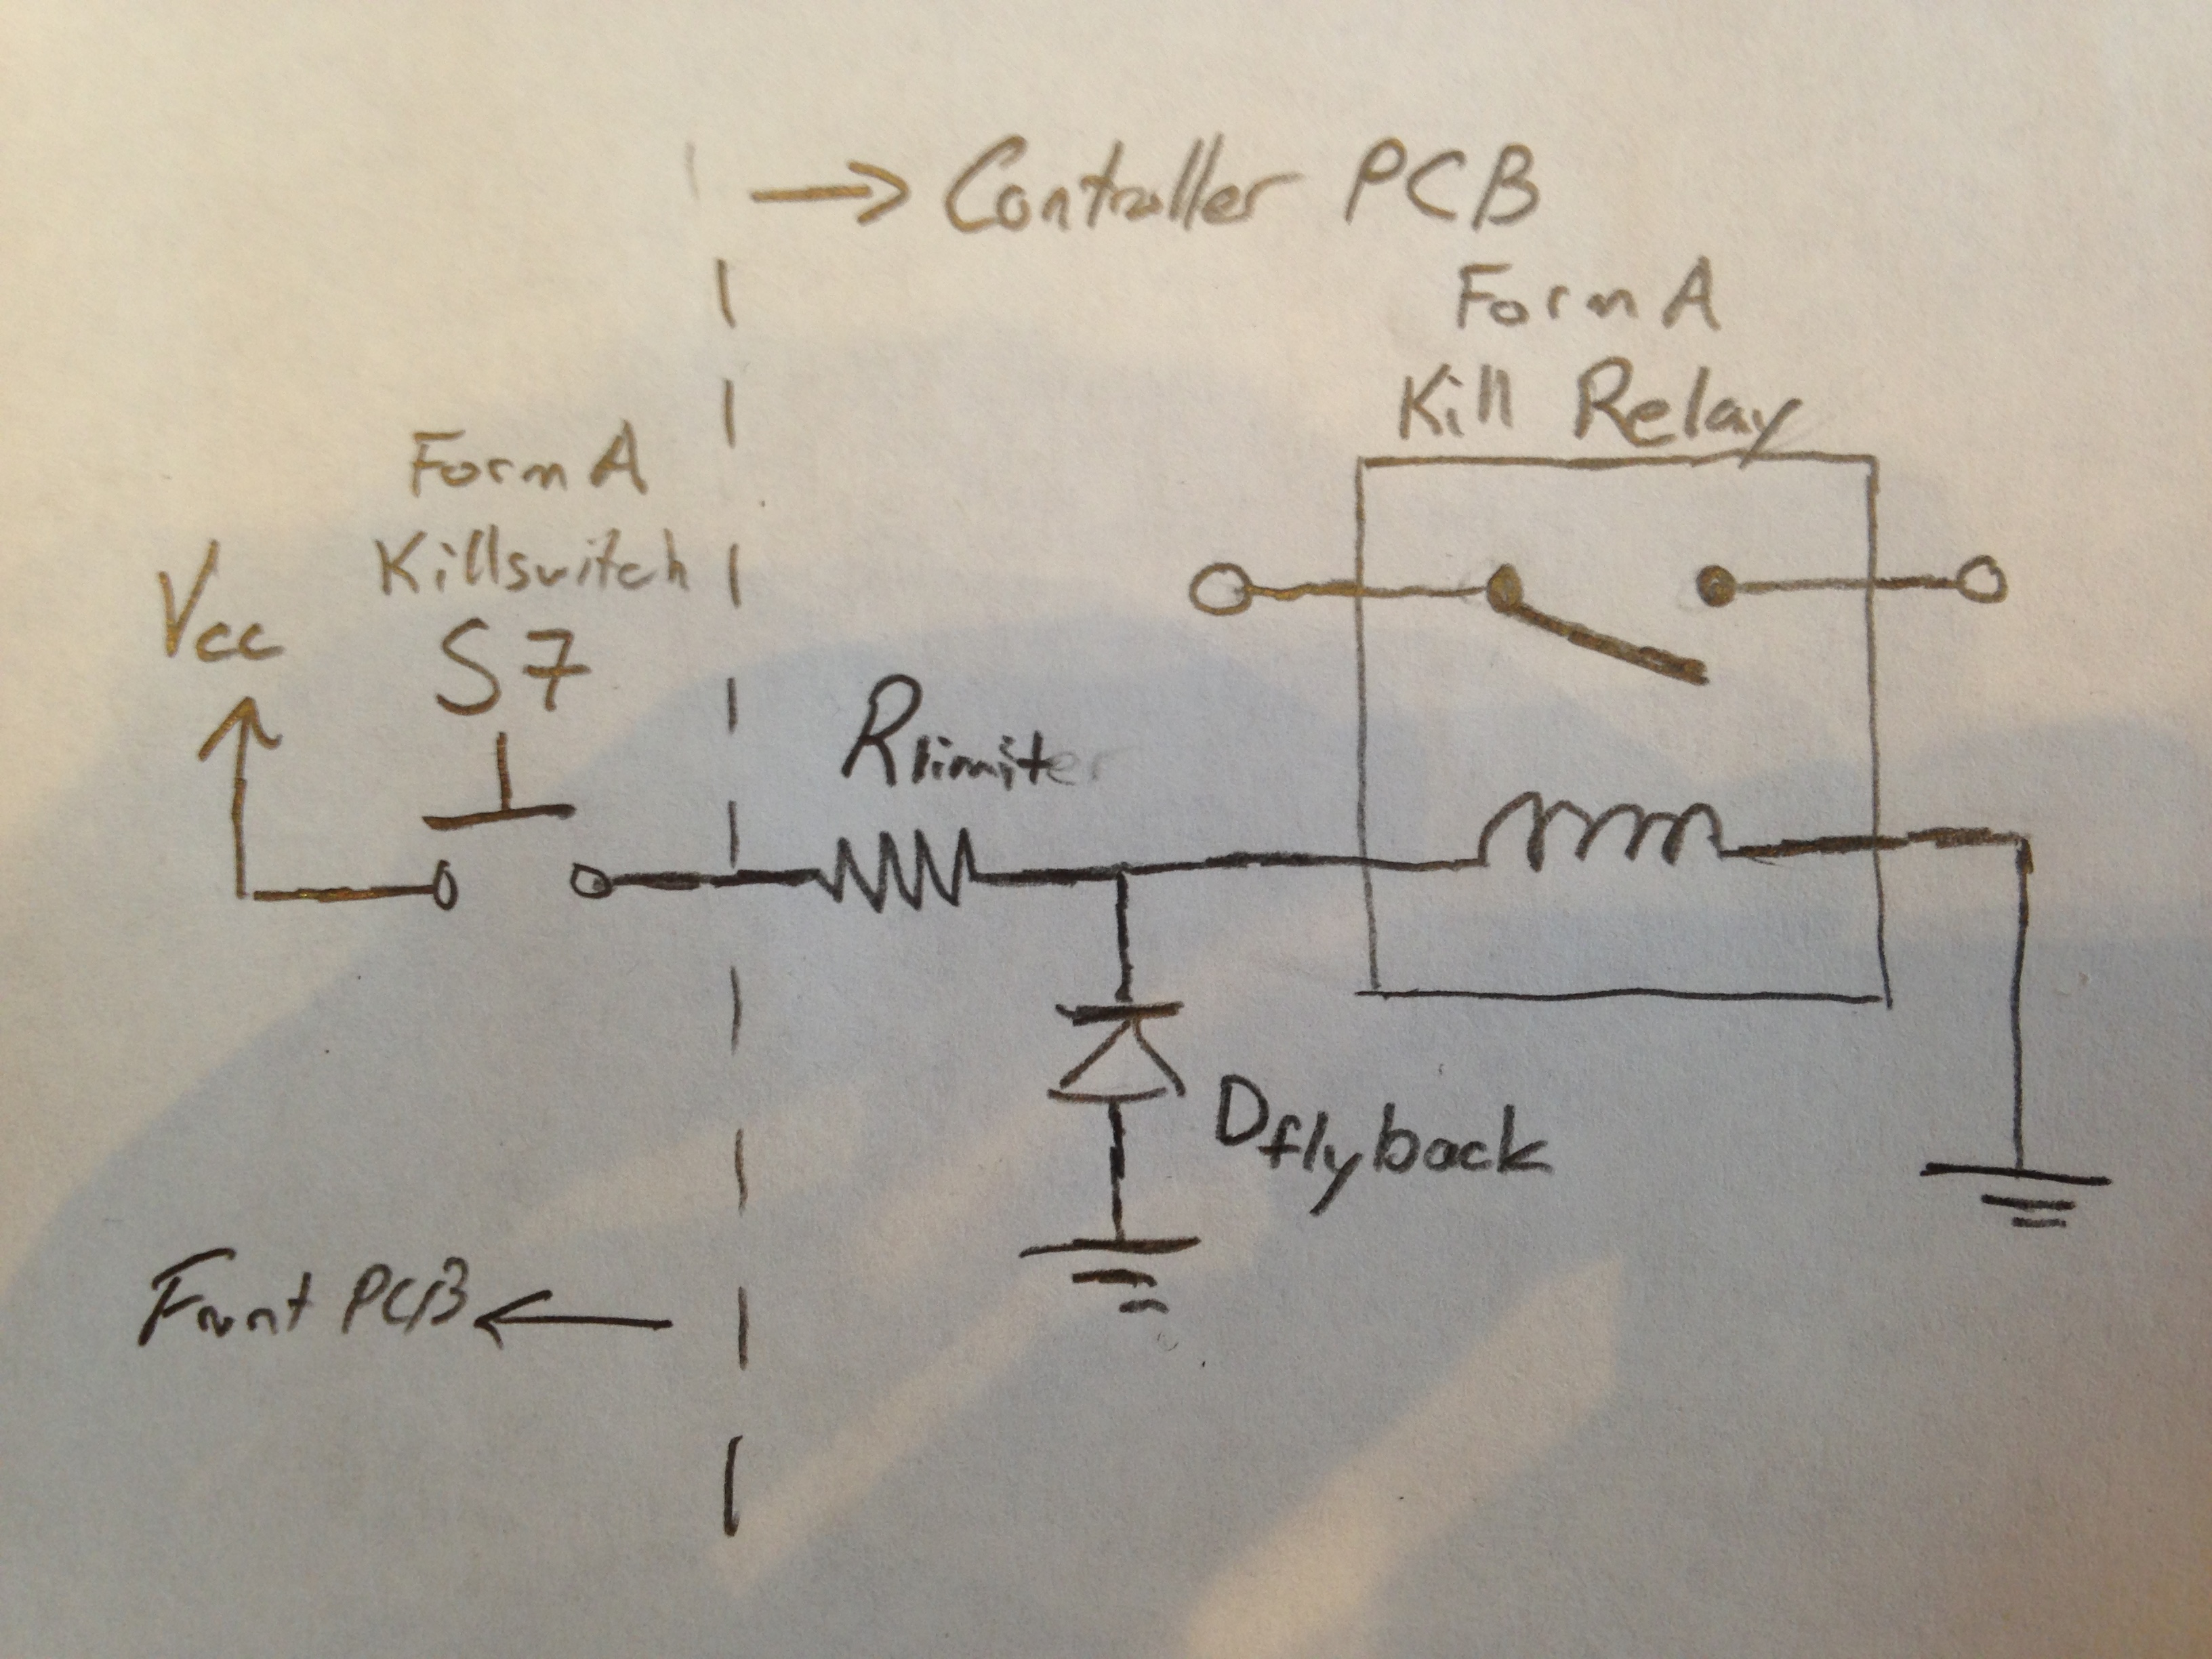 → Controller PCB
Form A
Kill Relay
Form A
Killswitch
S7
Vcc
Rlimiter
Dflyback
Front PCB ←